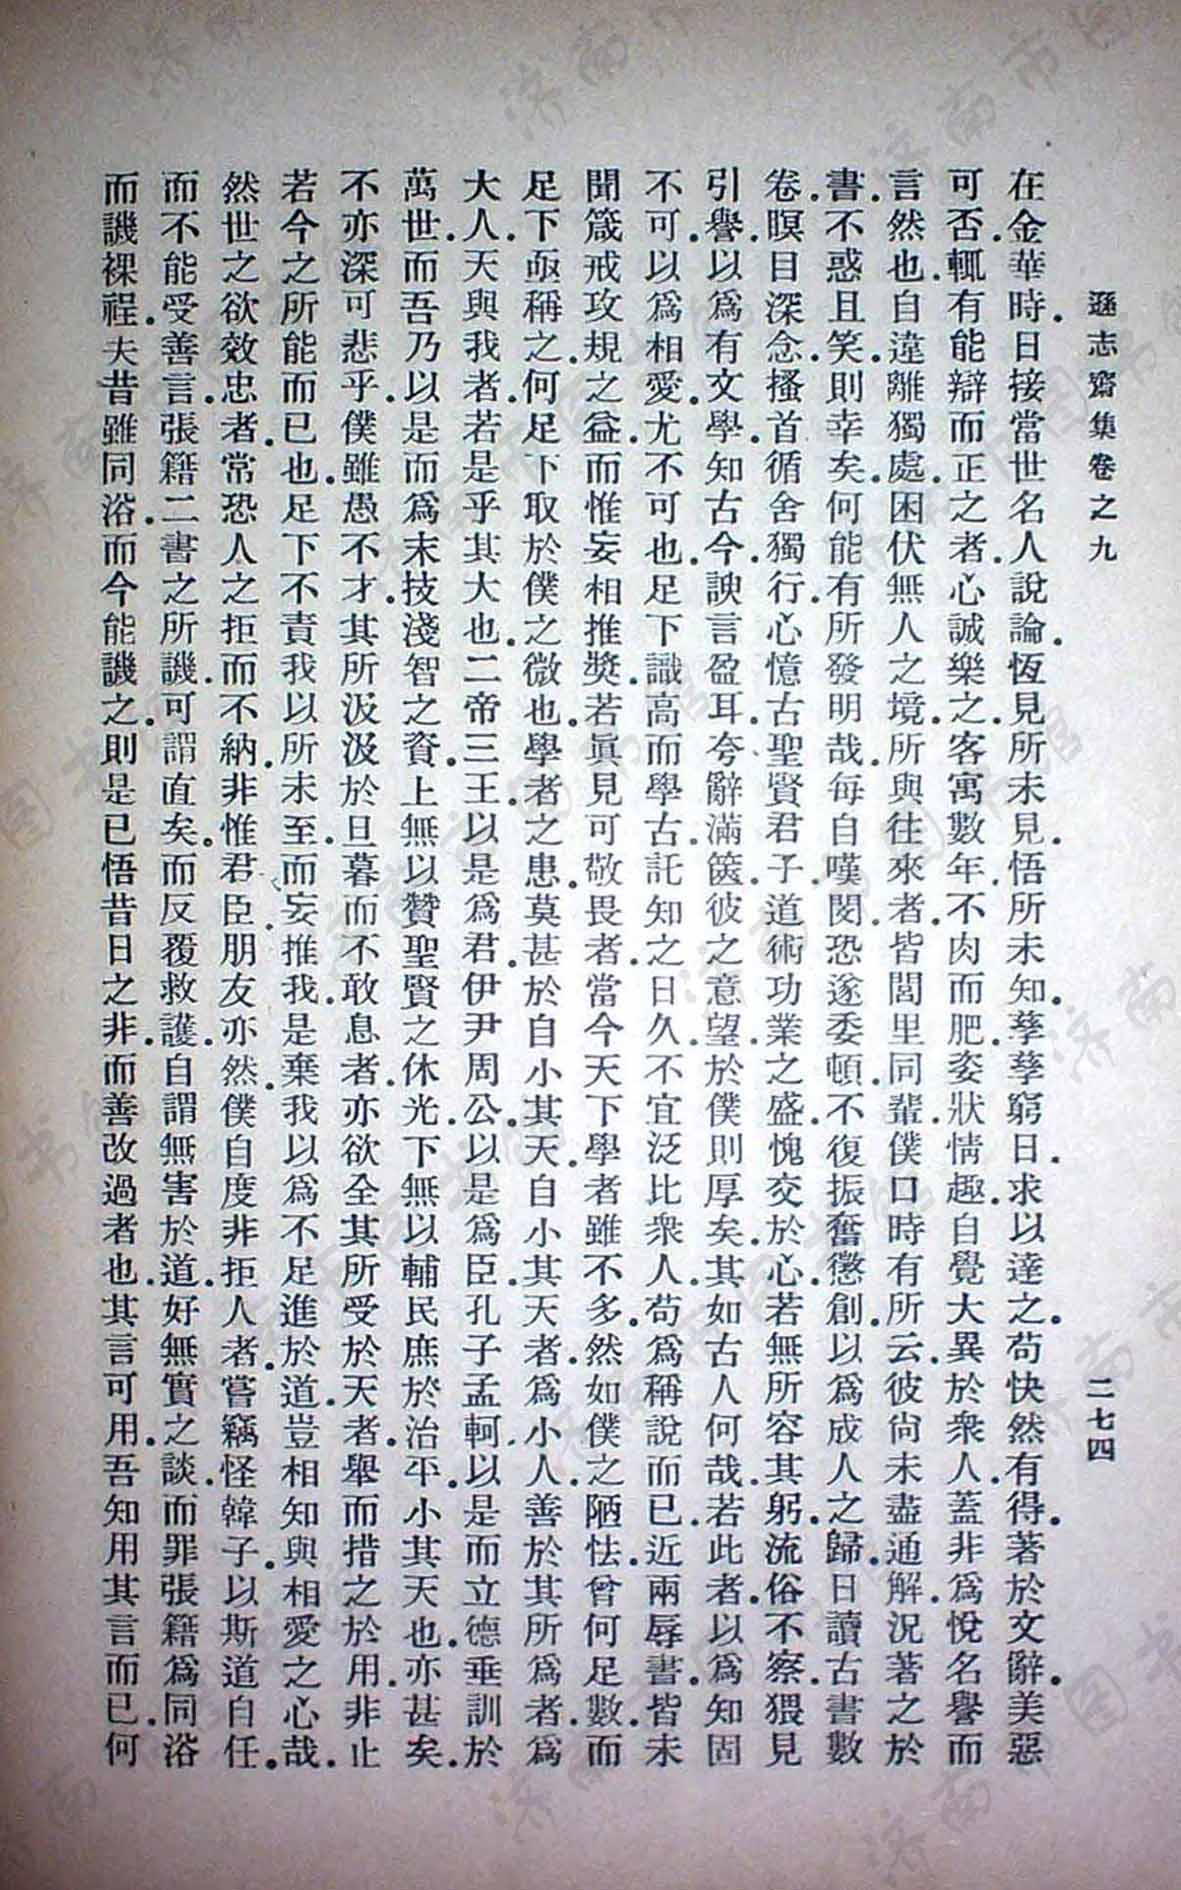 遜志齋集卷之九
二七四
在金華時．日接當世名人說論．恆見所未見．悟所未知．孳孳窮日．求以達之．苟快然有得．著於文辭．美惡
可否．輒有能辯而正之者．心誠樂之．客寓數年．不肉而肥．姿狀情趣．自覺大異於衆人．蓋非爲悅名譽而
言然也．自違離獨處．困伏無人之境．所與往來者．皆閭里同輩．僕口時有所云．彼尙未盡通解．況著之於
書．不惑且笑．則幸矣．何能有所發明哉．每自嘆閔．恐遂委頓．不復振奮懲創．以爲成人之歸．日讀古書數
卷．瞑目深念．搔首循舍獨行．心憶古聖賢君子．道術功業之盛．愧交於心．若無所容其躬．流俗不察．猥見
引譽．以爲有文學．知古今．諛言盈耳．夸辭滿篋．彼之意望於僕則厚矣．其如古人何哉．若此者．以爲知固
不可．以爲相愛．尤不可也．足下識高而學古．託知之日久．不宜泛比衆人．苟爲稱說而已．近兩辱書．皆未
聞箴戒攻規之益．而惟妄相推獎．若眞見可敬畏者．當今天下學者雖不多．然如僕之陋怯．曾何足數．而
足下亟稱之．何足下取於僕之微也．學者之患．莫甚於自小其天．自小其天者．爲小人．善於其所爲者．爲
大人．天與我者．若是乎其大也．二帝三王．以是爲君．伊尹周公．以是爲臣．孔子孟軻．以是而立德垂訓於
萬世．而吾乃以是而爲末技淺智之資．上無以贊聖賢之休光．下無以輔民庶於治平．小其天也．亦甚矣．
不亦深可悲乎．僕雖愚不才．其所汲汲於旦暮而不敢息者．亦欲全其所受於天者．舉而措之於用．非止
若今之所能而已也．足下不責我以所未至．而妄推我．是棄我以爲不足進於道．豈相知與相愛之心哉．
然世之欲效忠者．常恐人之拒而不納．非惟君臣．朋友亦然．僕自度非拒人者．嘗竊怪韓子．以斯道自任．
而不能受善言．張籍二書之所譏．可謂直矣．而反覆救護．自謂無害於道．好無實之談．而罪張籍爲同浴
而譏裸裎．夫昔雖同浴．而今能譏之．則是已悟昔日之非．而善改過者也．其言可用．吾知用其言而已．何